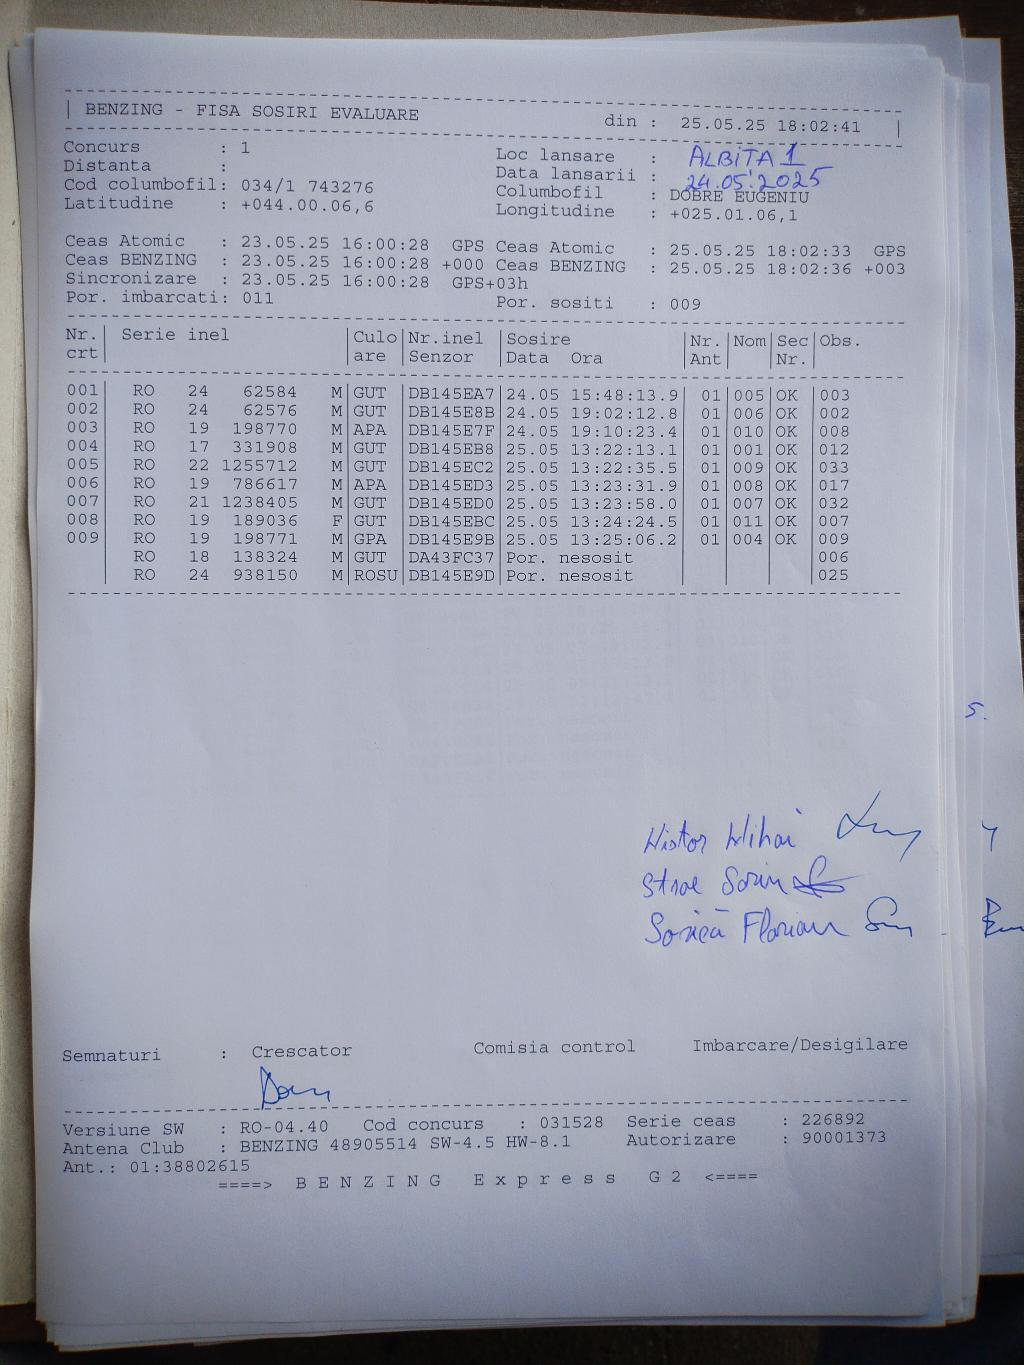 BENZING - FISA SOSIRI EVALUARE din : 25.05.25 18:02:41
Concurs : 1 Loc lansare : ALBITA 1
Distanta : Data lansarii : 24.05.2025
Cod columbofil: 034/1 743276 Columbofil : DOBRE EUGENIU
Latitudine : +044.00.06,6 Longitudine : +025.01.06,1
Ceas Atomic : 23.05.25 16:00:28 GPS Ceas Atomic : 25.05.25 18:02:33 GPS
Ceas BENZING : 23.05.25 16:00:28 +000 Ceas BENZING : 25.05.25 18:02:36 +003
Sincronizare : 23.05.25 16:00:28 GPS+03h
Por. imbarcati: 011 Por. sositi : 009
Nr. | Serie inel | Culo | Nr.inel | Sosire | Nr. | Nom | Sec | Obs.
crt | | are | Senzor | Data Ora | Ant | | Nr. |
001 | RO 24 62584 M | GUT | DB145EA7 | 24.05 15:48:13.9 | 01 | 005 | OK | 003
002 | RO 24 62576 M | GUT | DB145E8B | 24.05 19:02:12.8 | 01 | 006 | OK | 002
003 | RO 19 198770 M | APA | DB145E7F | 24.05 19:10:23.4 | 01 | 010 | OK | 008
004 | RO 17 331908 M | GUT | DB145EB8 | 25.05 13:22:13.1 | 01 | 001 | OK | 012
005 | RO 22 1255712 M | GUT | DB145EC2 | 25.05 13:22:35.5 | 01 | 009 | OK | 033
006 | RO 19 786617 M | APA | DB145ED3 | 25.05 13:23:31.9 | 01 | 008 | OK | 017
007 | RO 21 1238405 M | GUT | DB145ED0 | 25.05 13:23:58.0 | 01 | 007 | OK | 032
008 | RO 19 189036 F | GUT | DB145EBC | 25.05 13:24:24.5 | 01 | 011 | OK | 007
009 | RO 19 198771 M | GPA | DB145E9B | 25.05 13:25:06.2 | 01 | 004 | OK | 009
| RO 18 138324 M | GUT | DA43FC37 | Por. nesosit | | | | 006
| RO 24 938150 M | ROSU | DB145E9D | Por. nesosit | | | | 025
Mihai
Stroe Sorin
Florian
Semnaturi : Crescator Comisia control Imbarcare/Desigilare
Versiune SW : RO-04.40 Cod concurs : 031528 Serie ceas : 226892
Antena Club : BENZING 48905514 SW-4.5 HW-8.1 Autorizare : 90001373
Ant.: 01:38802615
====> B E N Z I N G E x p r e s s G 2 <====